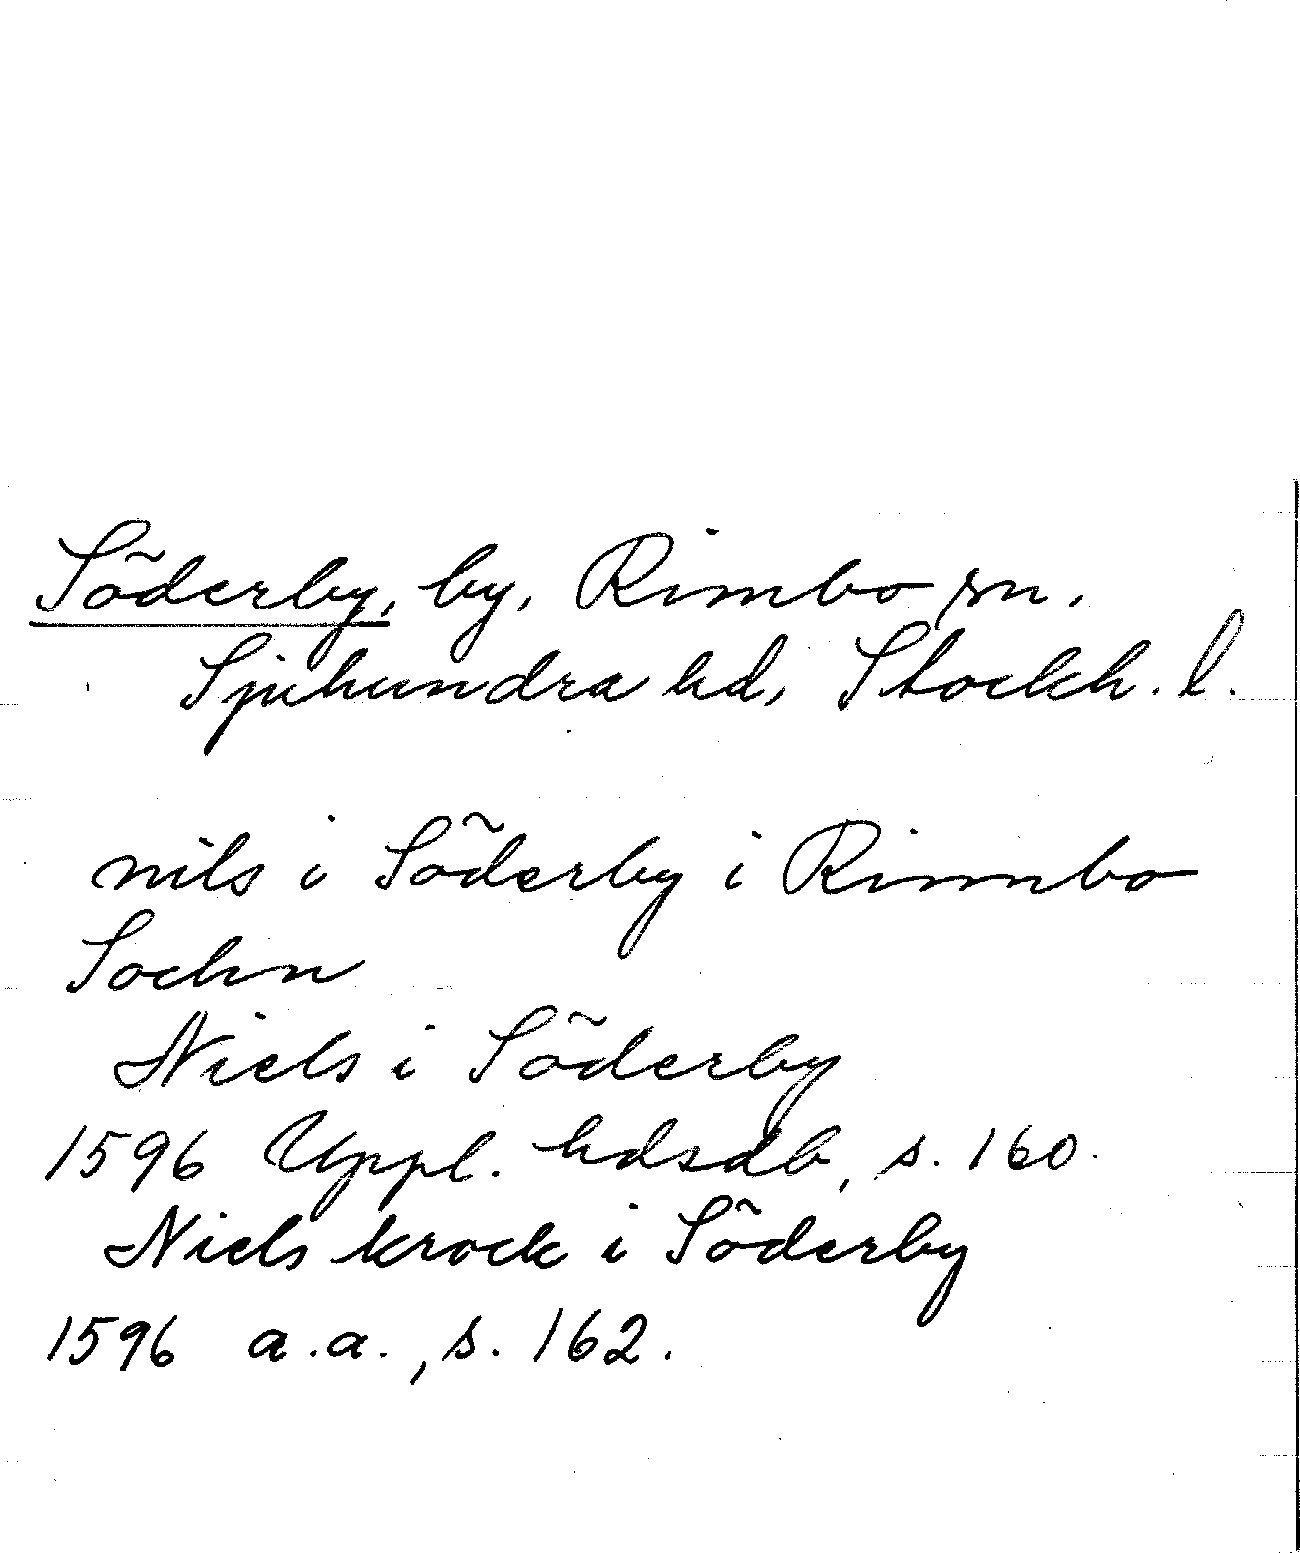 Söderby, by, Rimbo sn.
Sjuhundra hd, Stockh. l.
nils i Söderby i Rimbo
Sochn
Niels i Söderby
1596 Uppl. hdsdb, s. 160.
Niels krock i Söderby
1596 a.a., s. 162.